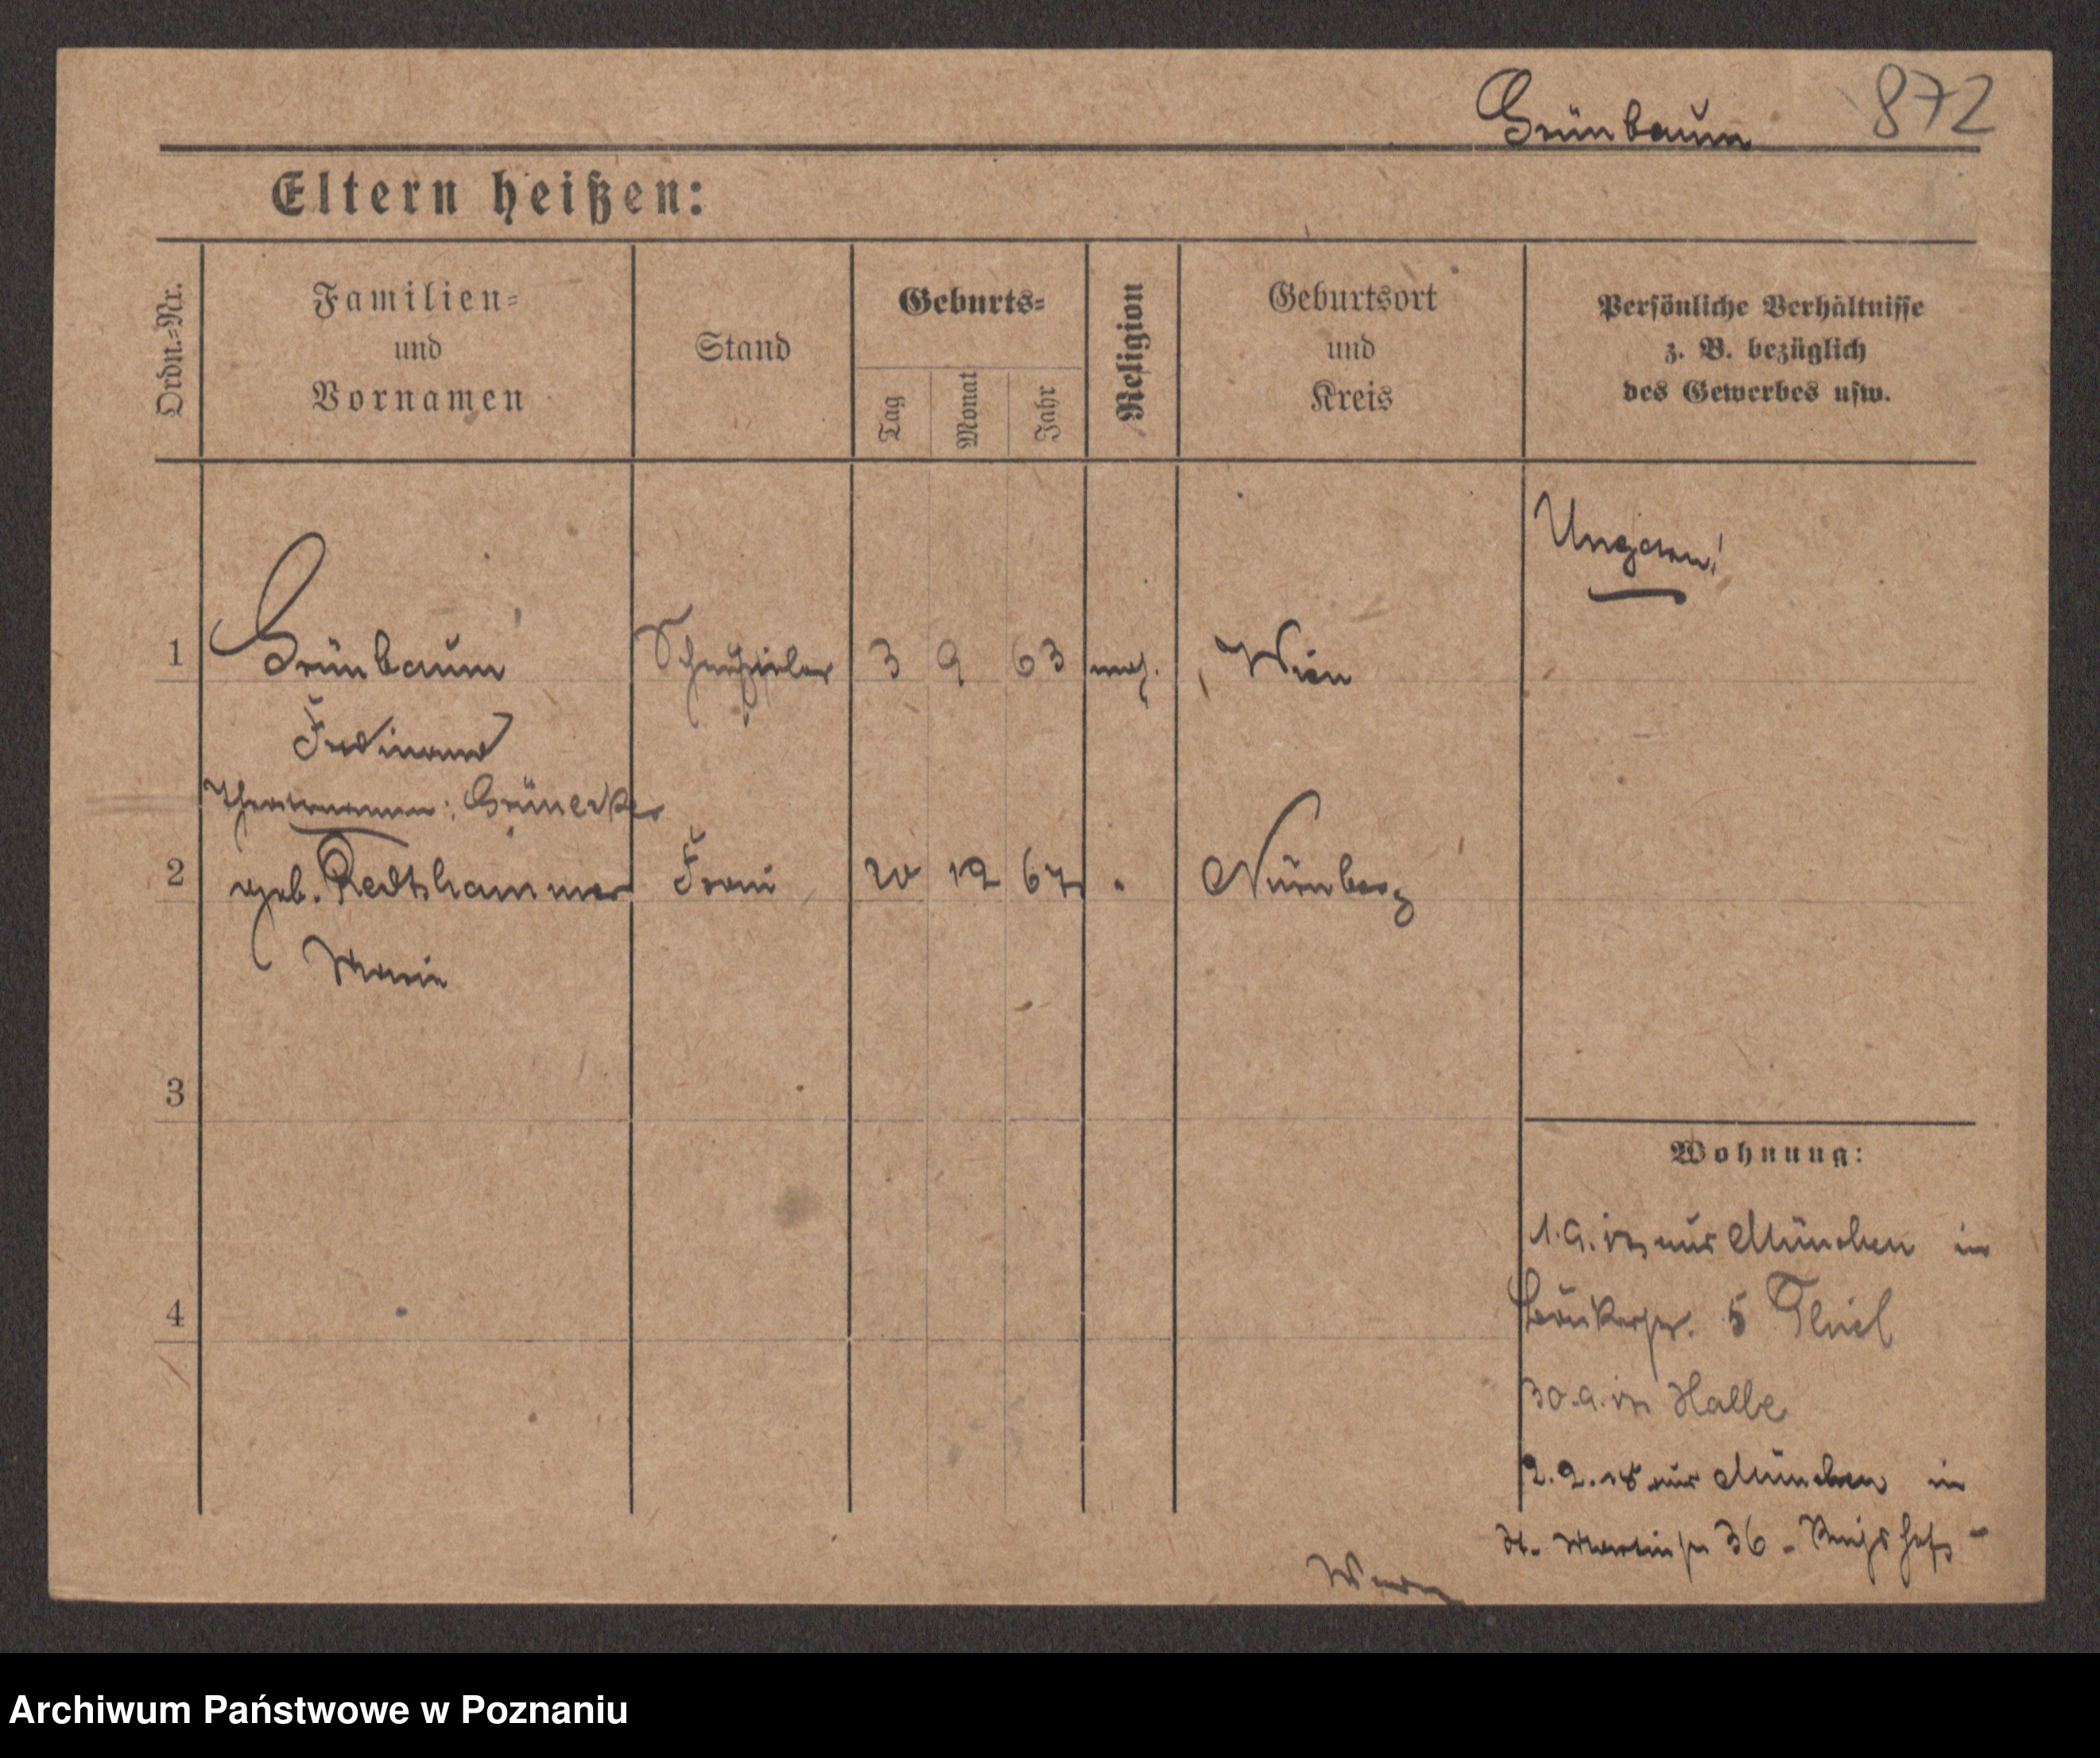 Grünbaum 872
Eltern heißen:
Ordn.=Nr.
Familien=
und
Vornamen
Stand
Geburts=
Tag
Monat
Jahr
Religion
Geburtsort
und
Kreis
Persönliche Verhältnisse
z. B. bezüglich
des Gewerbes usw.
Ungarn!
1 Grünbaum Schauspieler 3 9 63 mos. Wien
Ferdinand
Theatername: Grünecker
2 geb. Redtshammer Frau 20 12 67 " Nürnberg
Marie
3
Wohnung:
1.9. aus München in
4
5
30.9. Halle
2.2.18 aus München in
St. Martinstr 36 -